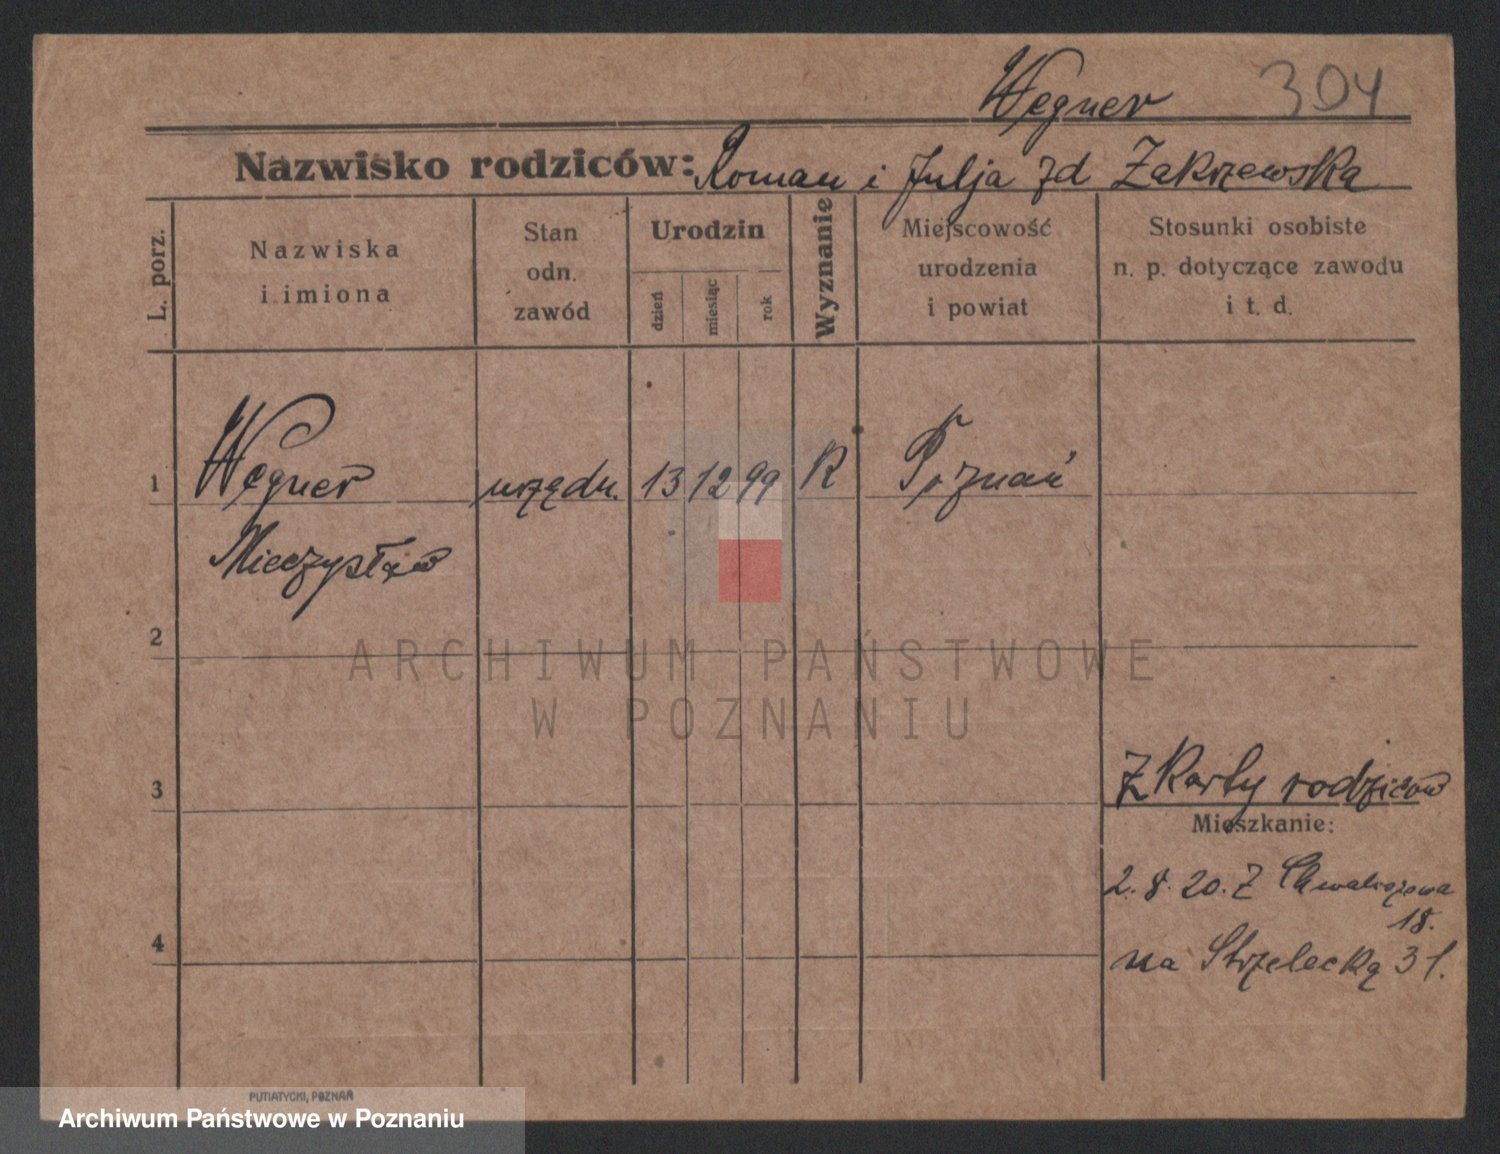 Wegner 304
Nazwisko rodziców: Roman i Julja zd Zakrzewska
L. porz.
Nazwiska
i imiona
Stan
odn.
zawód
Urodzin
dzień
miesiąc
rok
Wyznanie
Miejscowość
urodzenia
i powiat
Stosunki osobiste
n. p. dotyczące zawodu
i t. d.
1 Wegner urzędn. 13 12 99 R Poznań
Mieczysław
2
ARCHIWUM PAŃSTWOWE
W POZNANIU
3
Z Karty rodziców
Mieszkanie:
2. 8. 20. Z Chwaliszewa
18.
4
na Strzelecką 31.
PUTIATYCKI, POZNAŃ
Archiwum Państwowe w Poznaniu